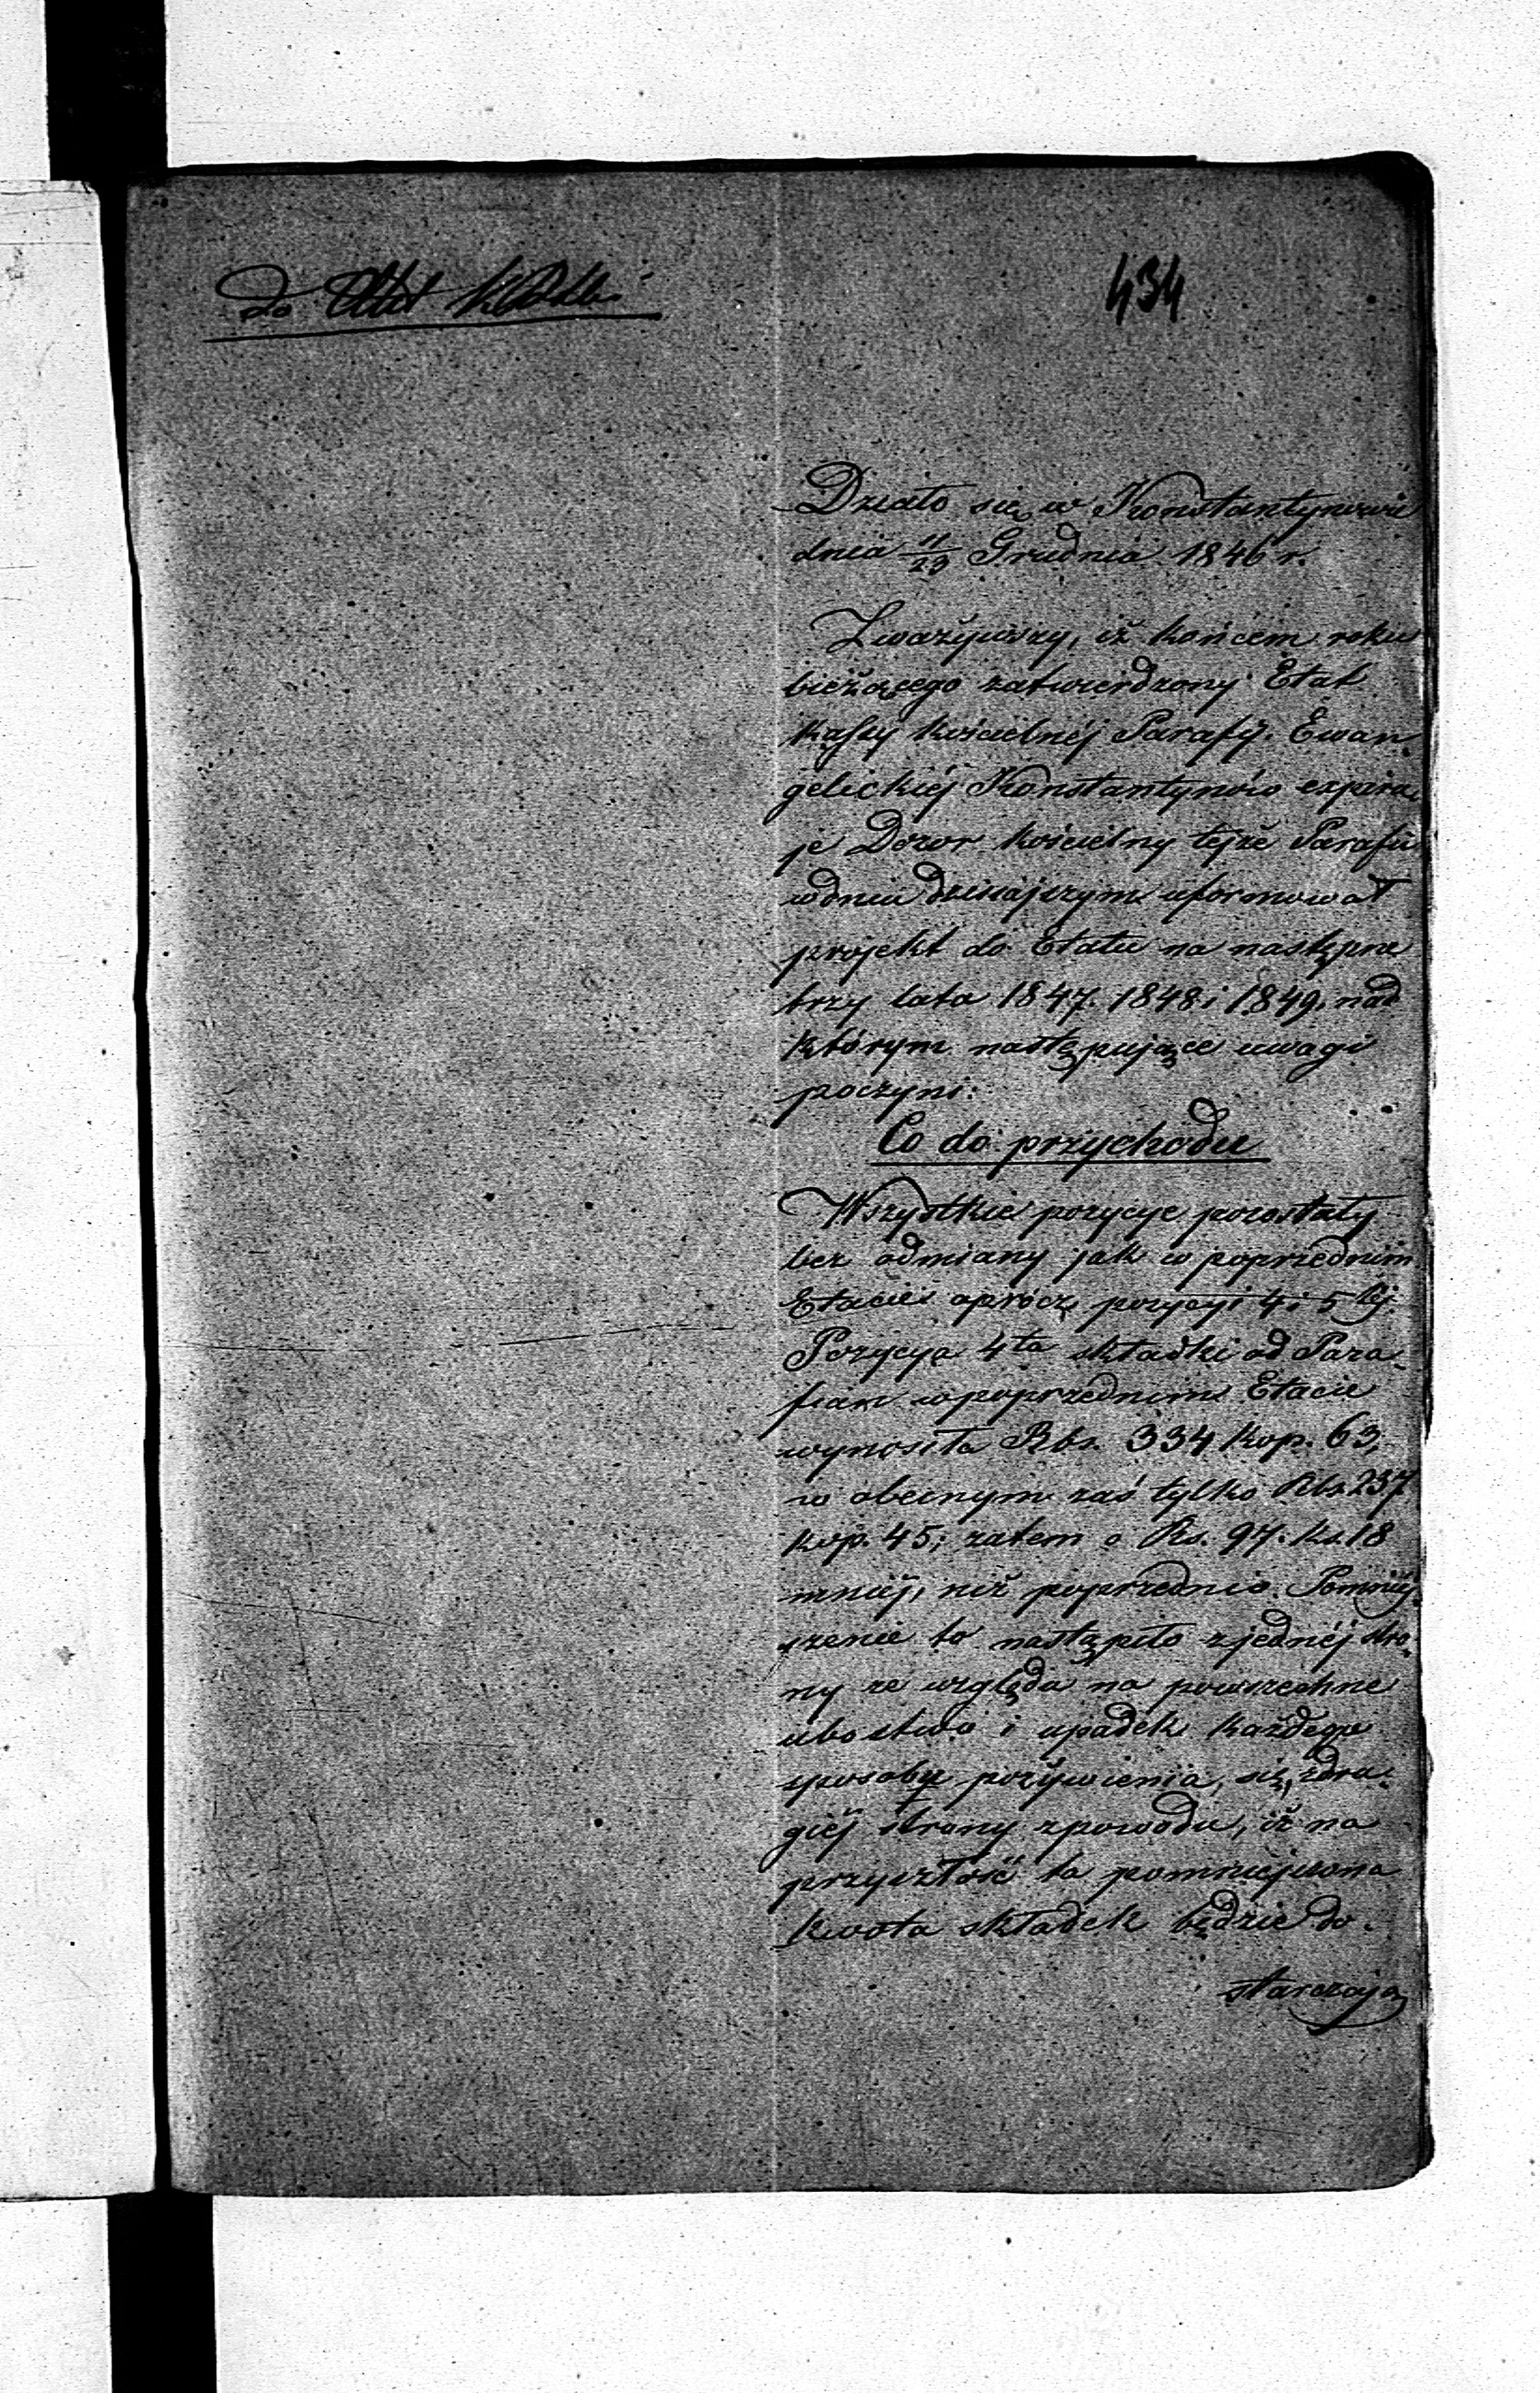 434
Działo się w Konstantynowie
dnia 11/23 Grudnia 1846 r.
Zważywszy, iż końcem roku
bieżącego zatwierdzony Etat
Kassy kościelnéj Parafÿ. Ewan-
gelickiéj Konstantynów expiru-
je Dozor kościelny tejże Parafii
wdniu dzisiajszym uformował
projekt do Etatu na następne
trzy lata 1847. 1848 i 1849, nad
którym następujące uwagi
poczyni:
Co do przychodu
Wszystkie pozycye pozostały
bez odmiany jak w poprzednim
Etacie oprócz pozycyi 4 i 5 téj.
Pozycya 4ta składki od Para-
fian wpoprzednim Etacie
wynosiła Rbs. 334 kop. 63,
w obecnym zaś tylko Rbs. 237
kop. 45; zatem o Rs. 97. ks. 18
mniéj, niż poprzednio. Pomniéj-
szenie to nastąpiło zjednéj stro-
ny ze względu na powszechne
ubostwo i upadek każdego
sposobu pożywienia, się, zdru-
giéj strony zpowodu, iż na
przyszłość ta pomniejszona
kwota składek będzie do-
starczają